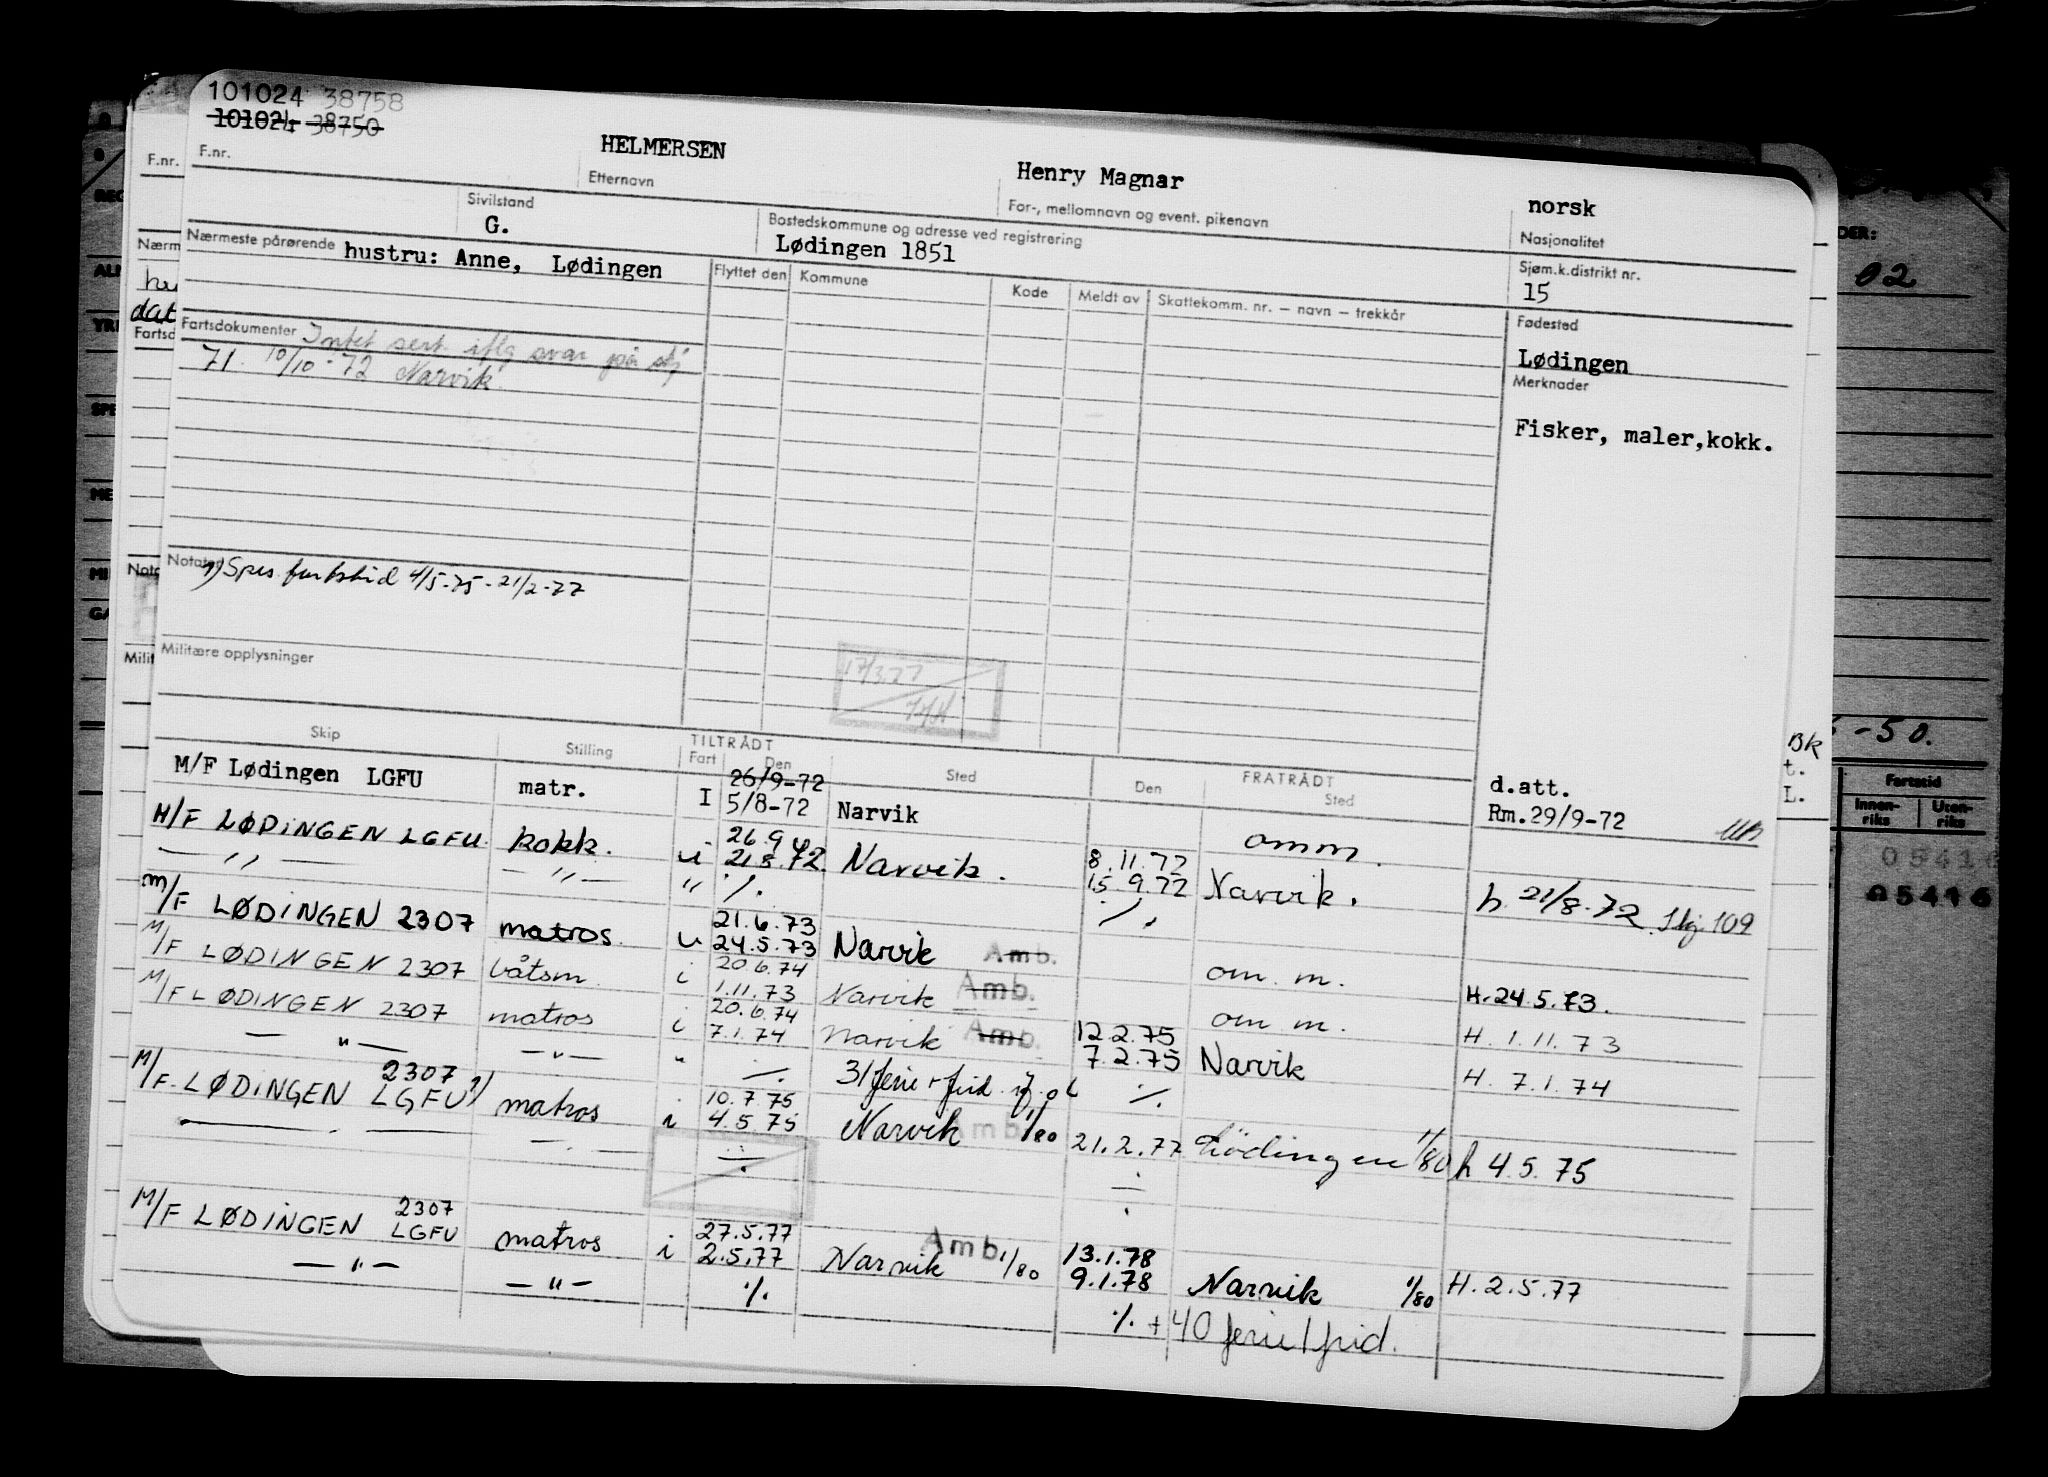 101024 38758
101024 38750
F.nr.
HELMERSEN
Etternavn
Henry Magnar
For-, mellomnavn og event. pikenavn
norsk
Nasjonalitet
Sivilstand
G.
Bostedskommune og adresse ved registrering
Lødingen 1851
Sjøm.k.distrikt nr.
15
Nærmeste pårørende hustru: Anne, Lødingen
Flyttet den Kommune Kode Meldt av Skattekomm. nr. – navn – trekkår
Fødested
Lødingen
Fartsdokumenter Intet sert iflg svar på skj
71. 10/10-72 Narvik
Merknader
Fisker, maler,kokk.
Notater
1) Spes. fartstid 4/5-75-21/2-77
Militære opplysninger
17/3.77
Skip Stilling TILTRÅDT Fart Den Sted FRATRÅDT Den Sted
M/F Lødingen LGFU matr. I 26/9-72 5/8-72 Narvik d.att. Rm.29/9-72
M/F LØDINGEN LGFU. kokk. i 26.9.72 21.8.72. Narvik. 8.11.72 omm.
— " — — " — " ·/. 15.9.72 Narvik. h 21/8-72 Skj 109
M/F LØDINGEN 2307 matros. i 21.6.73 24.5.73 Narvik Amb. ·/. om. m. H. 24.5.73.
M/F LØDINGEN 2307 båtsm. i 20.6.74 1.11.73 Narvik Amb. om m. H. 1.11.73
M/F LØDINGEN 2307 matros i 20.6.74 7.1.74 Narvik Amb. 12.2.75 7.2.75 Narvik H. 7.1.74
— " — — " — " ·/. 31 ferie + frid ·/.
M/F. LØDINGEN 2307 LGFU 1) matros i 10.7.75 4.5.75 Narvik Amb. 1/80 21.2.77 Lødingen 1/80 h 4.5.75
M/F LØDINGEN 2307 LGFU matros i 27.5.77 2.5.77 Narvik Amb. 1/80 13.1.78 9.1.78 Narvik 1/80 H. 2.5.77
— " — — " — ·/. ·/. + 40 ferie/frid.
F.nr.
Nærm
dat
Fartsd
Nota
Milit
Bk
t.
L.
DER:
02
-50.
Fartstid
Innen-riks Uten-riks
05416
05416